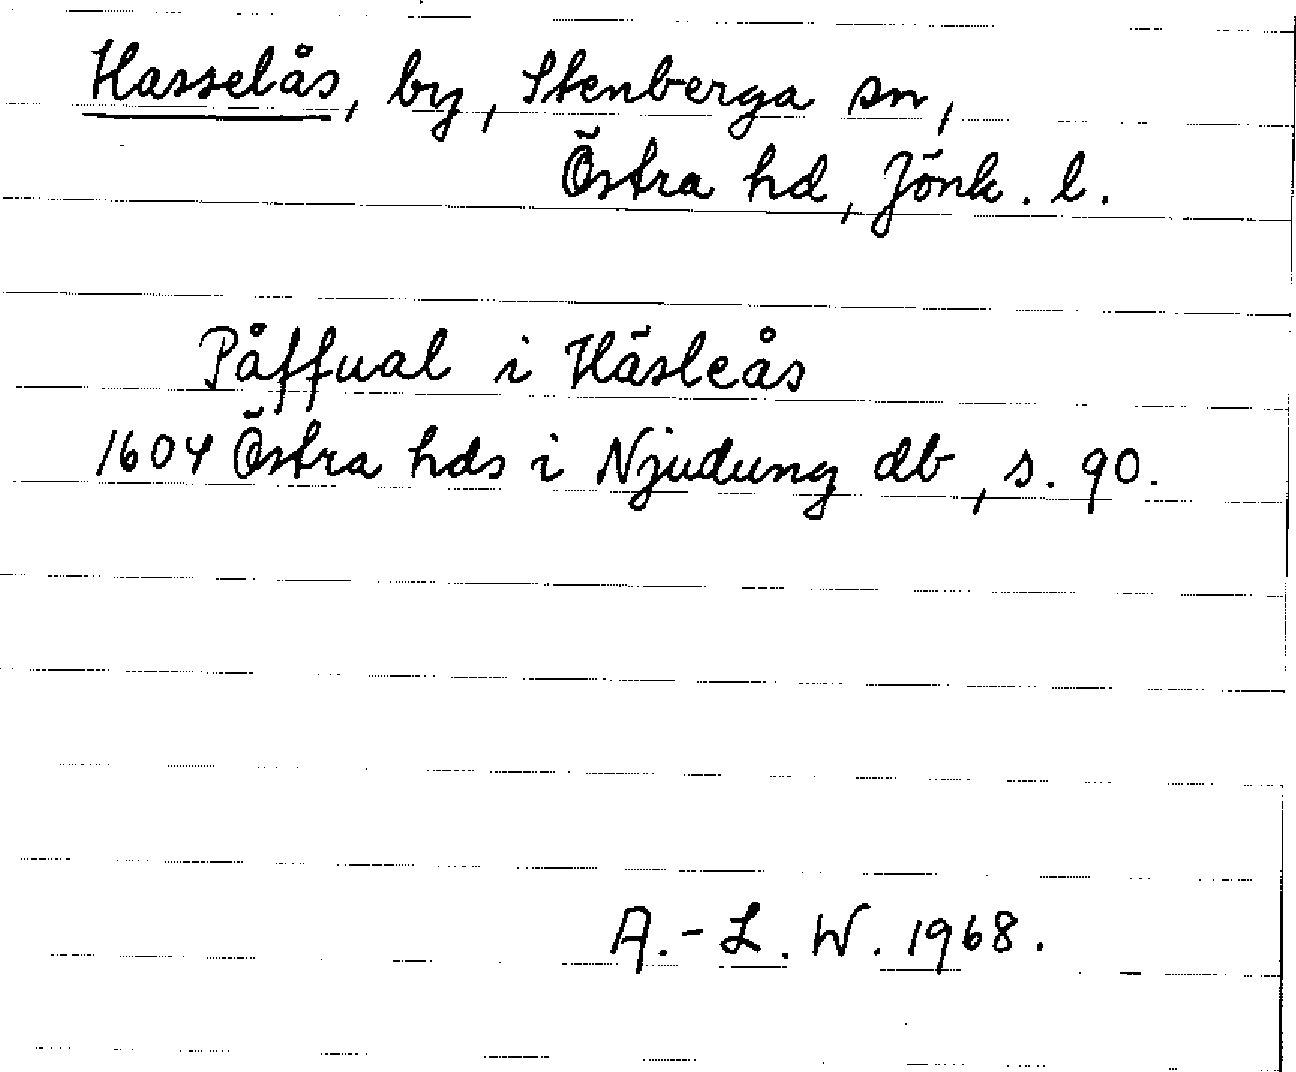 Hasselås, by, Stenberga sn,
Östra hd, Jönk. l.
Påffual i Häsleås
1604 Östra hds i Njudung db, s. 90.
A.-L. W. 1968.